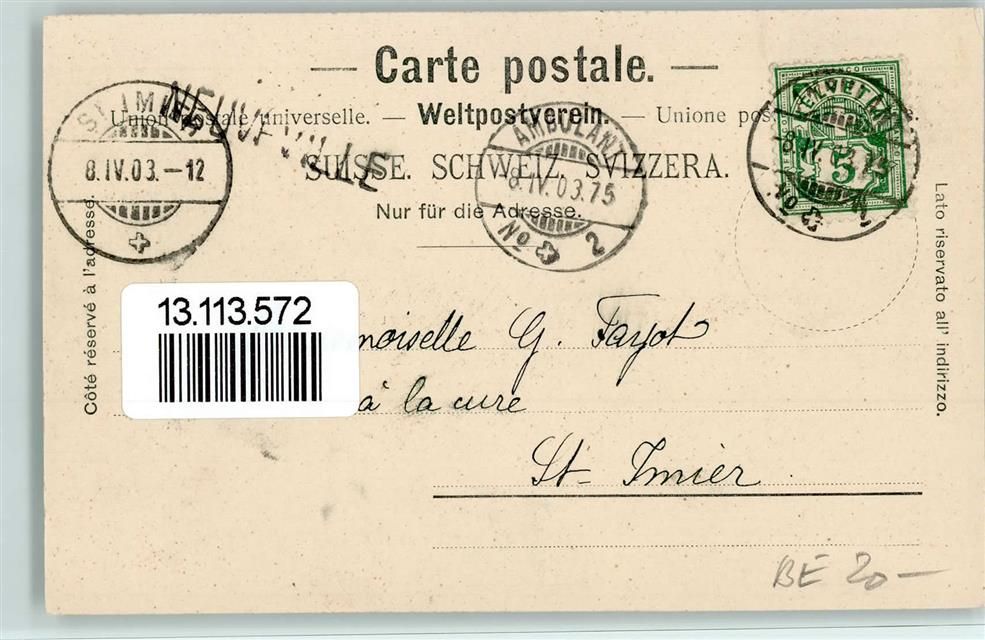 — Carte postale. —
Union postale universelle. — Weltpostverein. — Unione pos
SUISSE. SCHWEIZ. SVIZZERA.
Nur für die Adresse.
ST. IMIER
8.IV.03.–12
NEUVEVILLE
AMBULANT
8.IV.03.75
No 2
FRANCO
HELVETIA
8.IV. 75
5
No
Côté réservé à l'adresse.
Lato riservato all' indirizzo.
13.113.572
moiselle G. Fayot
à la cure
St-Imier
BE 20—